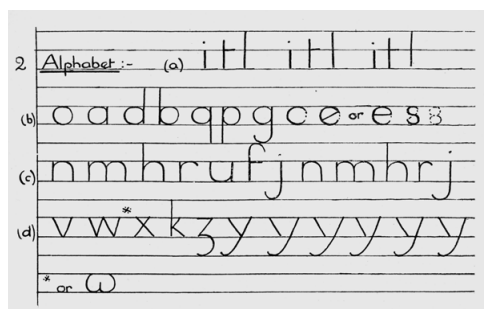 2 Alphabet:- (a) itl itl itl
(b) o a d b q p g c e or e s 8
(c) n m h r u f j n m h r j
(d) v w* x k z y y y y y y y
* or ω